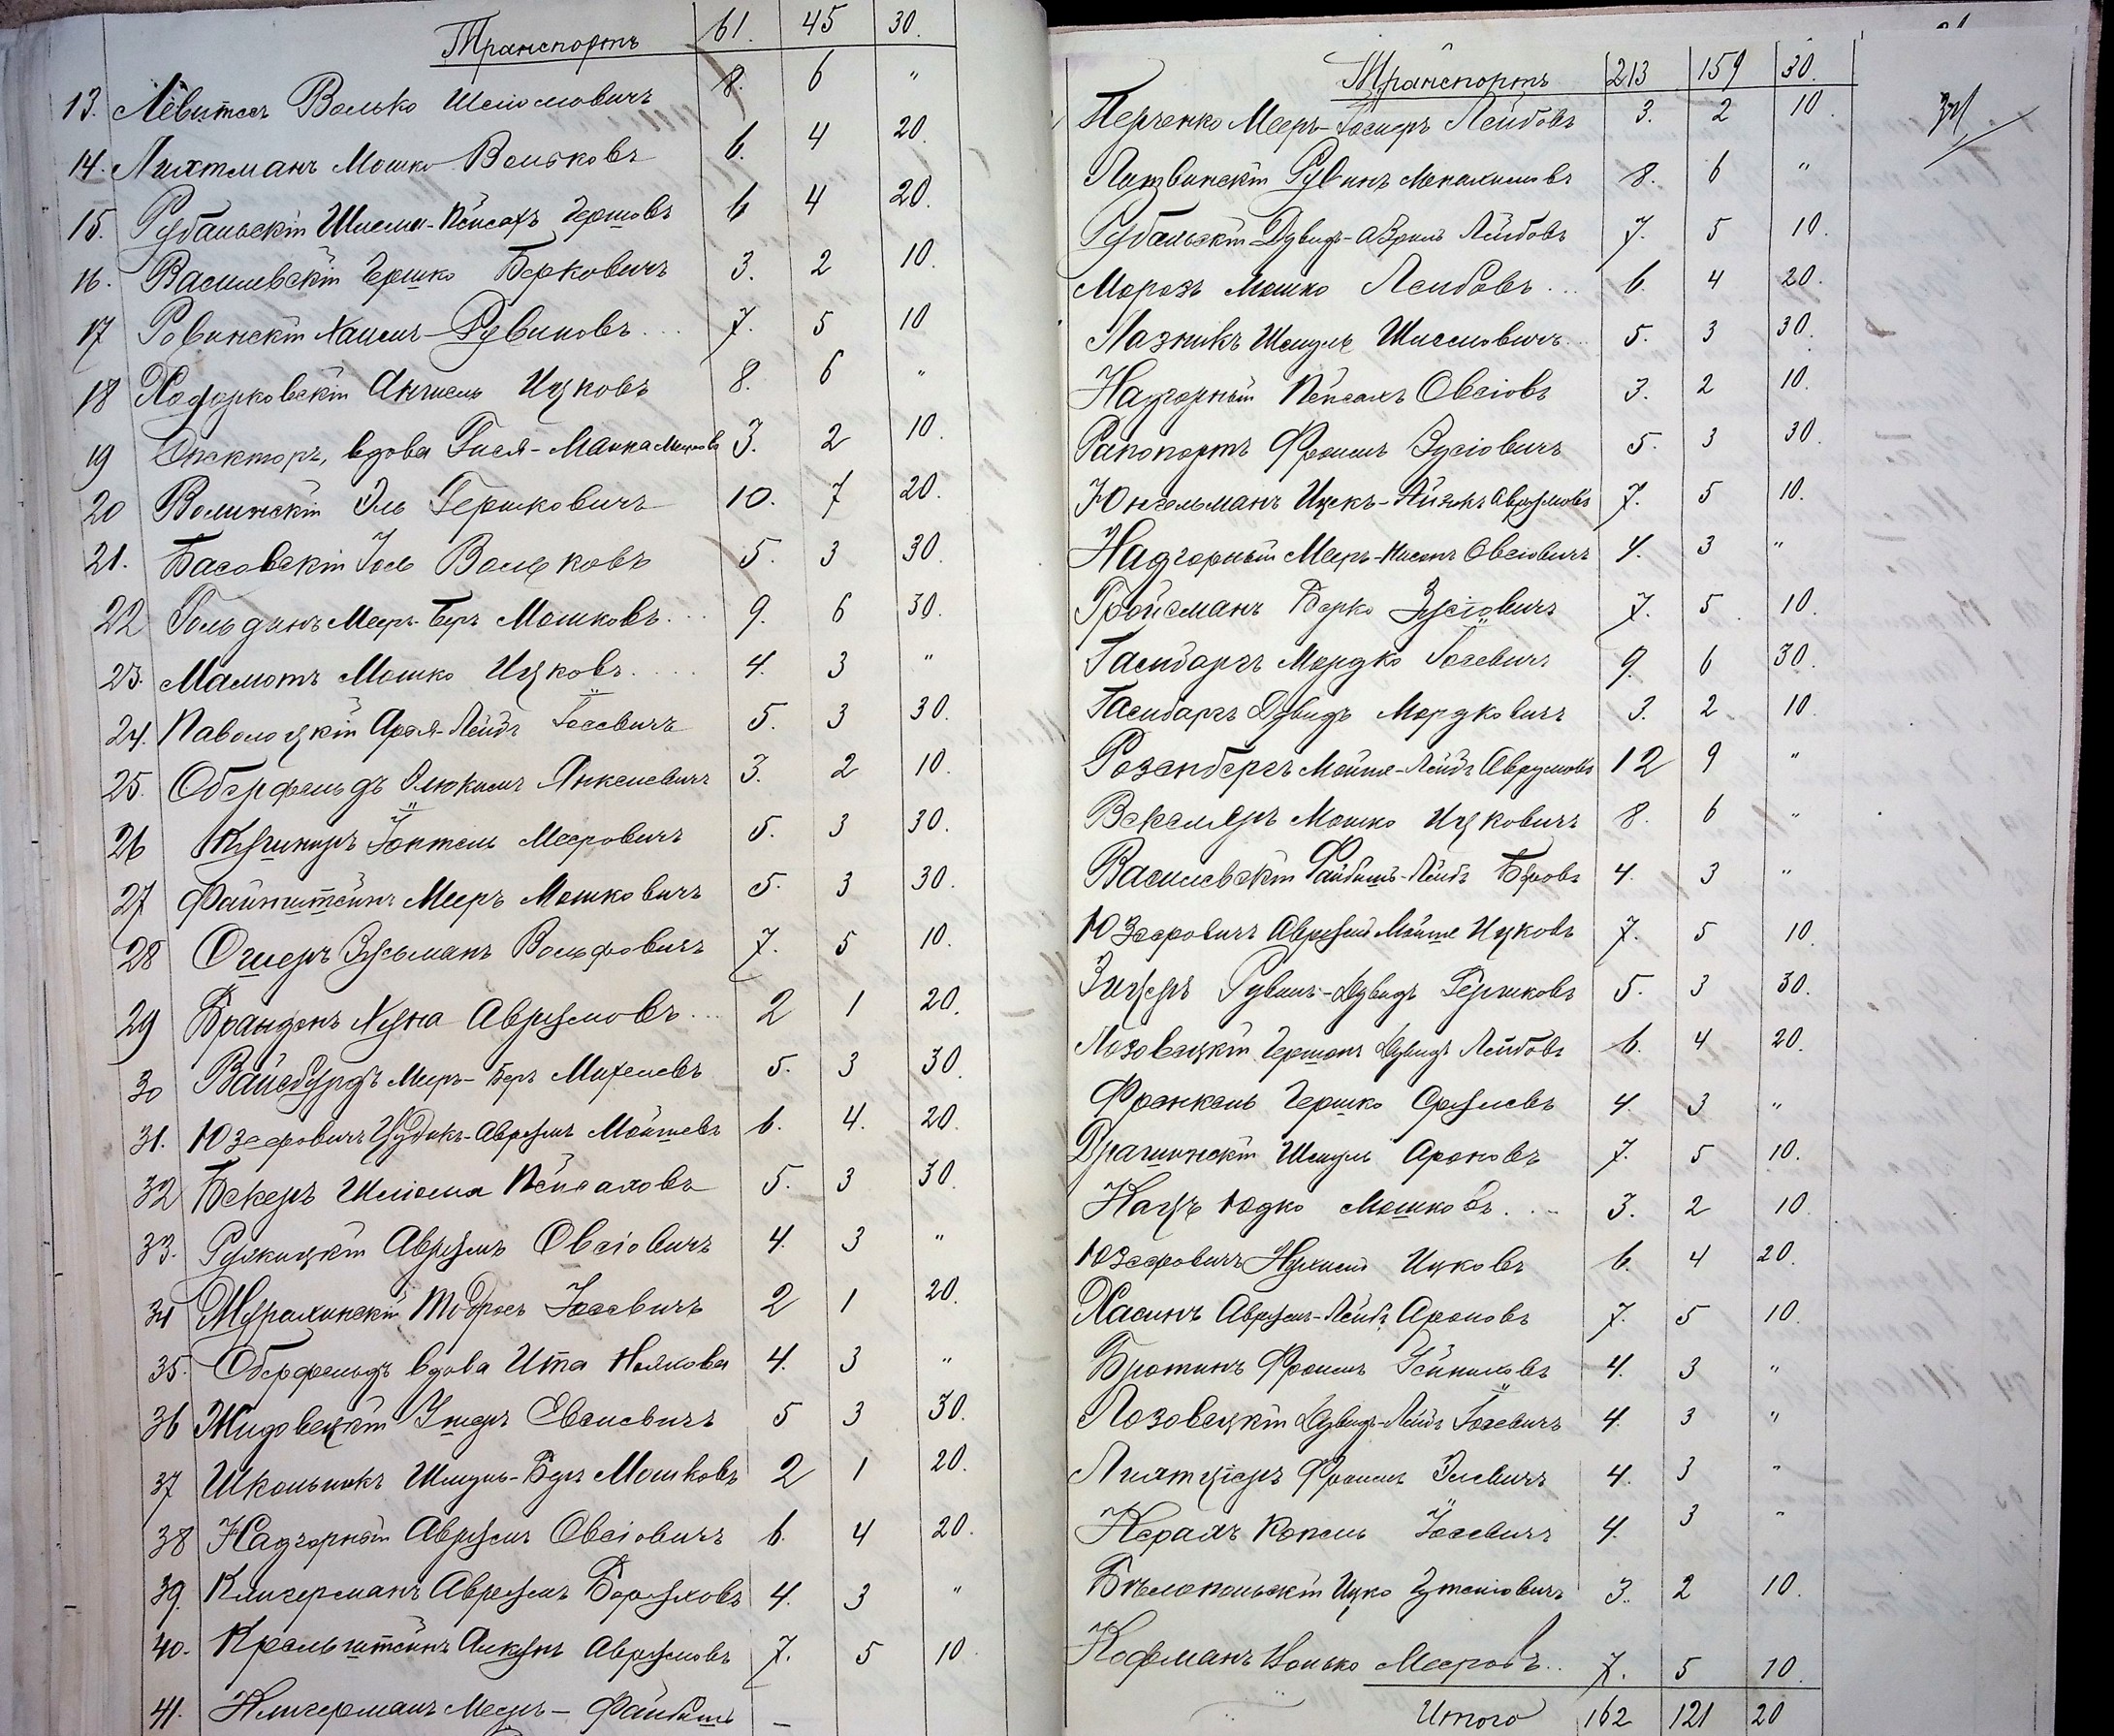 Транспортъ 61. 45 30.
13. Левитъ Волько Шліомовичъ 8. 6 "
14. Лихтманъ Мошко Вольковъ 6. 4 20.
15. Рубальскій Шлема-Пейсахъ Гершовъ 6 4 20.
16. Василевскій Гершко Берковичъ 3. 2 10.
17 Ровинскій Хаимъ-Рувиновъ... 7. 5 10
18 Ходорковскій Анчель Ицковъ 8. 6 "
19 Спекторъ, вдова Гися-Маика 3. 2 10.
20 Волинскій Эль Гершковичъ 10. 7 20.
21. Басовскій Іось Вольковъ 5. 3 30.
22 Гольдинъ Меер-Беръ Мошковъ... 9. 6 30.
23. Маломъ Мошко Ицковъ.... 4. 3 "
24. Паволоцкій Арон-Лейбъ Іосевичъ 5. 3 30.
25. Оберфельдъ Элюкимъ Янкелевичъ 3. 2 10.
26 Кушниръ Іонтель Мееровичъ 5. 3 30.
27 Файнштейнъ Мееръ Мошковичъ 5. 3 30.
28 Ошеръ Зусьманъ Вольфовичъ 7. 5 10.
29 Бранденъ Хуна Аврумовъ... 2 1 20.
30 Вайсбурдъ Меиръ-Беръ Михелевъ 5. 3 30.
31. Юзефовичъ Цудикъ-Аврумъ Мойшевъ 6. 4. 20.
32 Бекеръ Шліома Пейсаховъ 5. 3 30.
33. Ружицкій Аврумъ Овсіовичъ 4. 3 "
34 Мурахинскій Тодросъ Іосевичъ 2 1 20.
35. Оберфельдъ вдова Ита Ноякова 4. 3 "
36 Жидовецкій Ушеръ Евселевичъ 5 3 30.
37 Школьникъ Шмуль-Беръ Мошковъ 2 1 20.
38 Надгорный Аврумъ Овсіовичъ 6. 4 20.
39. Клигерманъ Аврумъ Боруховъ 4. 3 "
40. Крельштейнъ Алкунъ Аврумовъ 7. 5 10
41. Клигерманъ Мееръ-Файбишъ —
Транспортъ 213 159 30.
Перченко Мееръ-Іосифъ Лейбовъ 3. 2 10.
Литвинскій Рувинъ Менахимовъ 8. 6 "
Рубальскій Дувидъ-Аврумъ Лейбовъ 7. 5 10.
Морозъ Мошко Лейбовъ... 6. 4 20.
Лазникъ Шмуль Шлемовичъ... 5. 3 30.
Надгорный Пейсахъ Овсіовъ 3. 2 10.
Рапопортъ Фроимъ Зусіовичъ 5. 3 30.
Юнгельманъ Ицекъ-Айзикъ Аврумовъ 7. 5 10.
Надгорный Мееръ-Нисонъ Овсіовичъ 4. 3 "
Гройсманъ Берко Зусіовичъ 7. 5. 10.
Гамбаргъ Мордко Іосевичъ 9. 6 30.
Гамбаргъ Дувидъ Мордковичъ 3. 2. 10.
Розенбергъ Мойше-Лейбъ Аврумовъ 12 9 "
Векслеръ Мошко Ицковичъ 8. 6 "
Василевскій Файбишъ-Лейбъ Беровъ 4. 3 "
Юзефовичъ Аврумъ Мойше Ицковъ 7. 5 10.
Зицеръ Рувинъ-Дувидъ Гершковъ 5. 3 30.
Лозовецкій Гершонъ Дувидъ Лейбовъ 6. 4 20.
Френкель Гершко Срулевъ 4. 3 "
Драгинскій Шмуль Ароновъ 7. 5 10.
Кацъ Юдко Мошковъ... 3. 2 10.
Юзефовичъ Нухимъ Ицковъ 6. 4 20.
Хасинъ Аврумъ-Лейбъ Ароновъ 7. 5 10.
Бротинъ Фроимъ 4. 3 "
Лозовецкій Дувидъ-Лейбъ Іосевичъ 4. 3 "
Лихтціеръ Фроимъ Элевичъ 4. 3 "
Керахъ Копель Іосевичъ 4. 3 "
Бѣлопольскій Ицко 3. 2 10.
Кофманъ Мееровъ.. 7. 5 10.
Итого 162 121 20